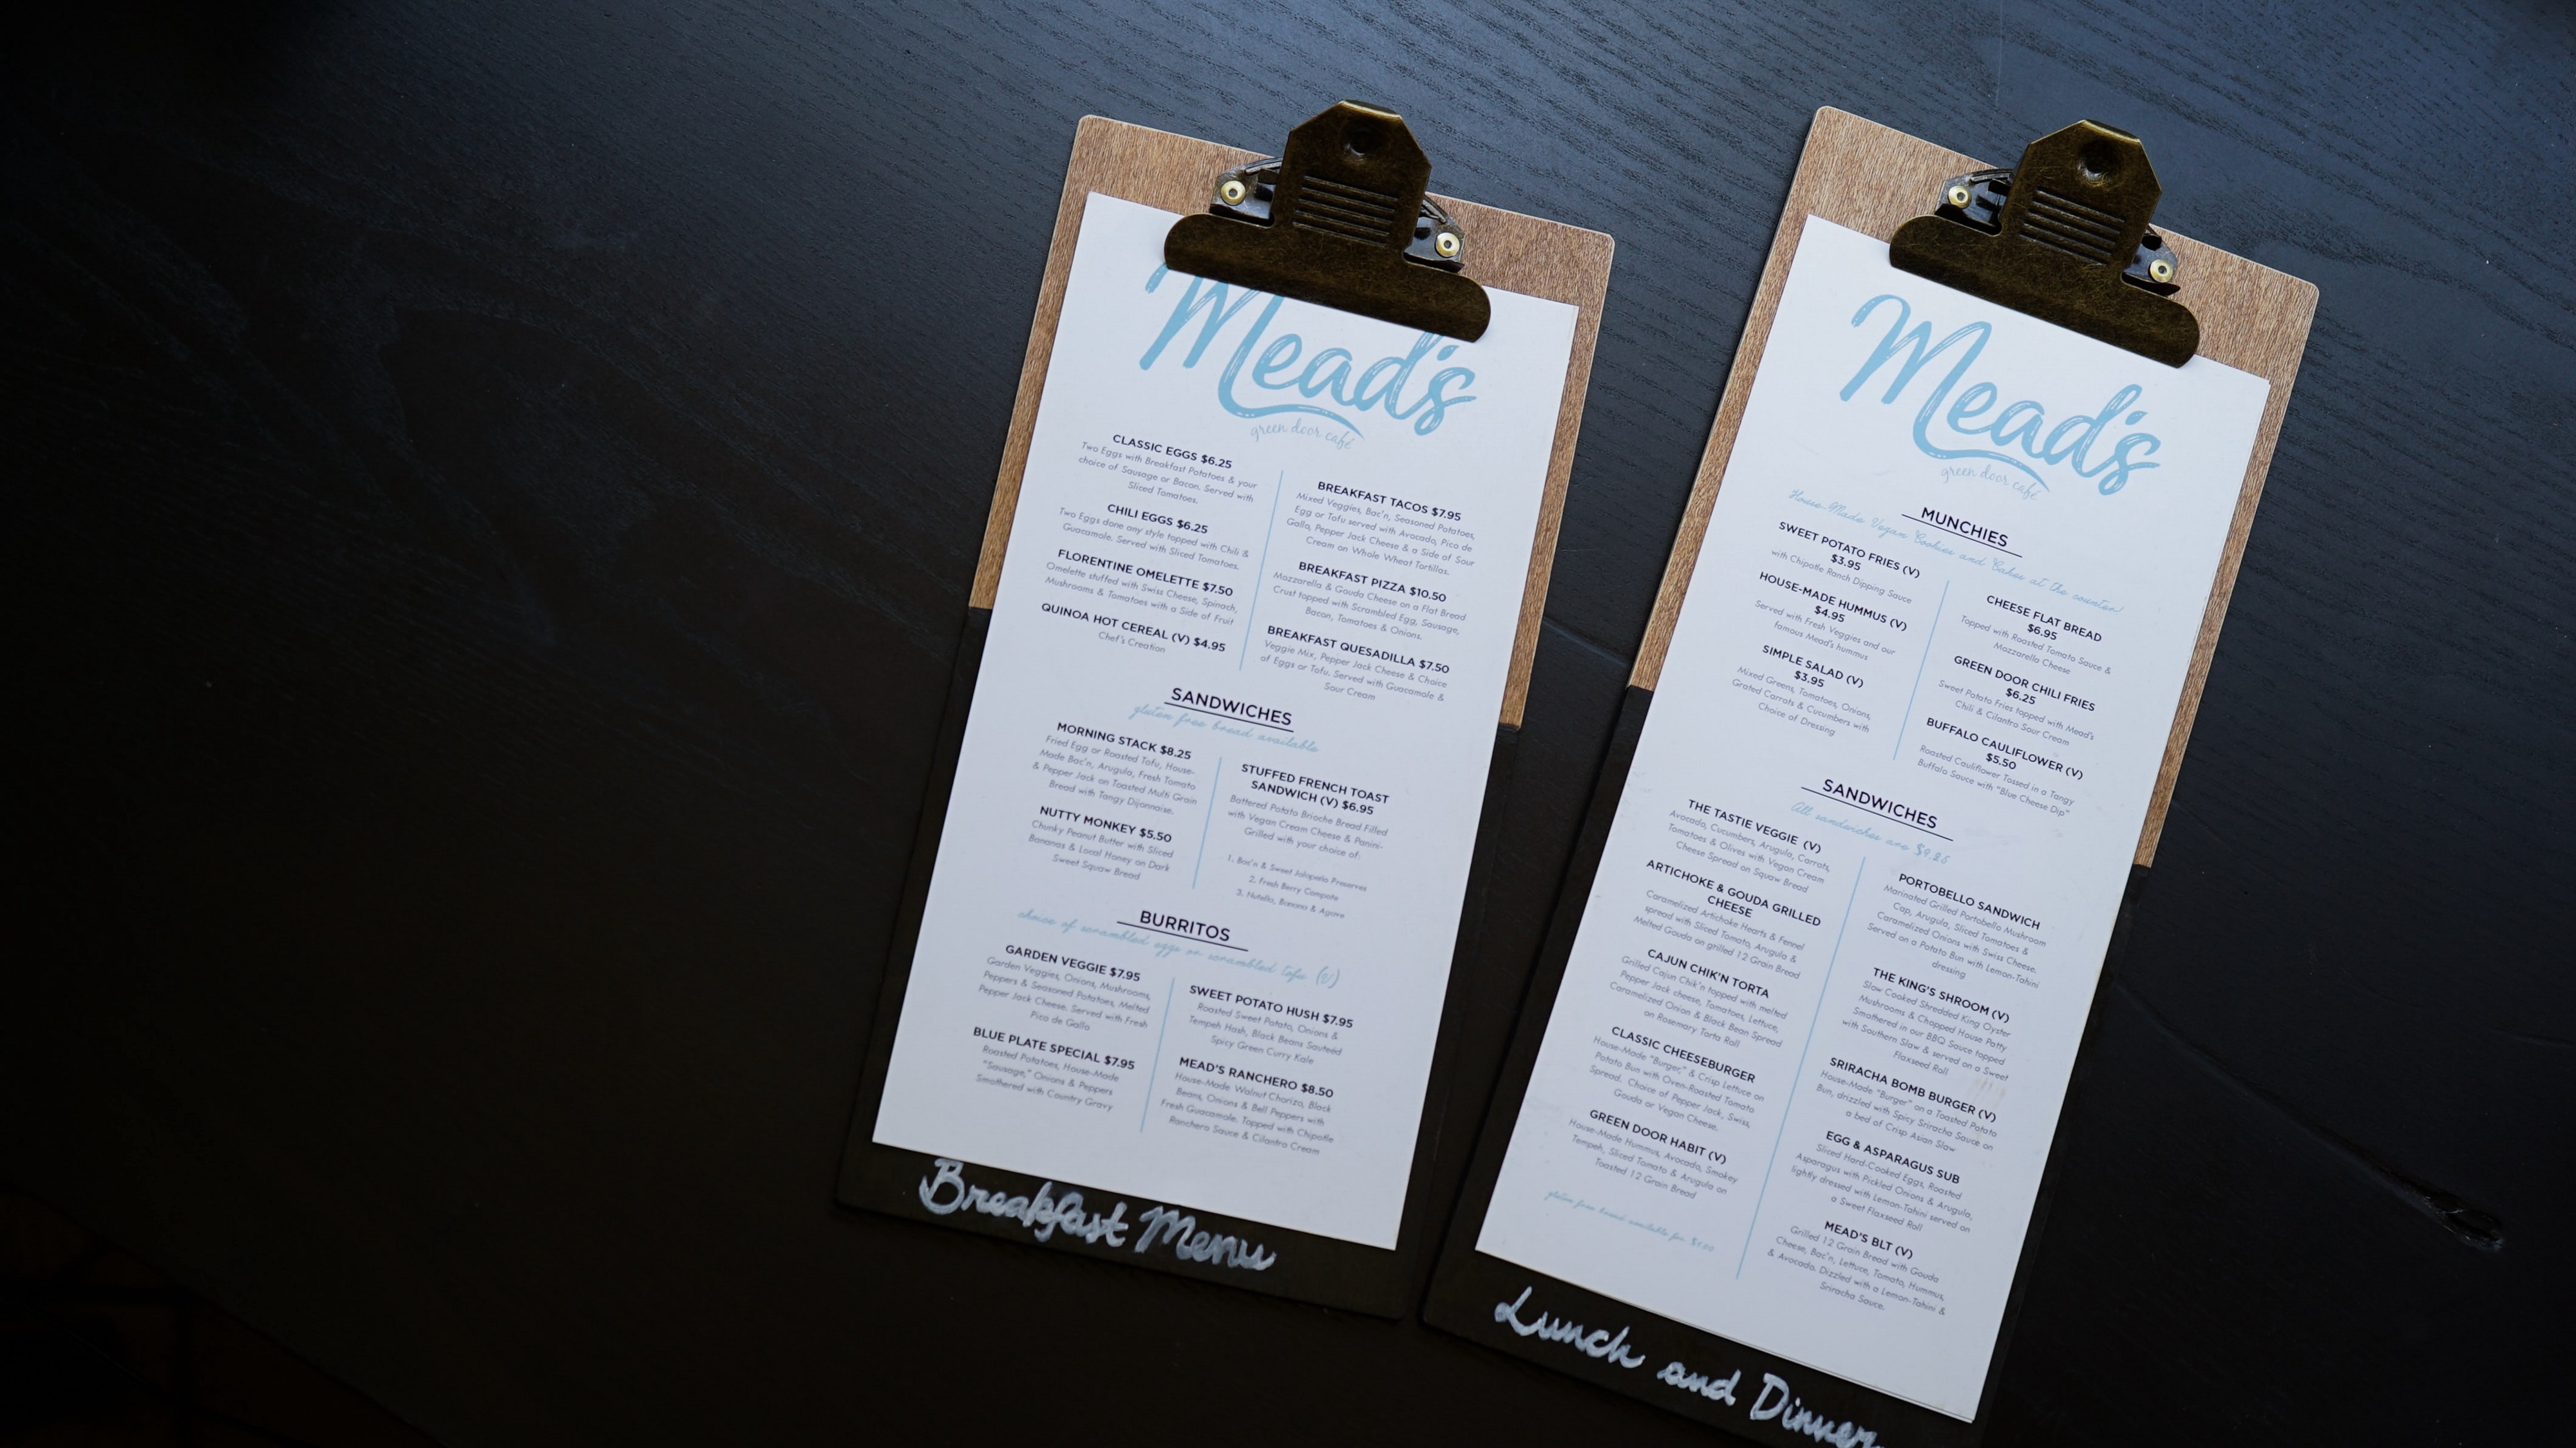 Mead's
green door café
CLASSIC EGGS $6.25
Two Eggs with Breakfast Potatoes & your
choice of Sausage or Bacon. Served with
Sliced Tomatoes.
CHILI EGGS $6.25
Two Eggs done any style topped with Chili &
Guacamole. Served with Sliced Tomatoes.
FLORENTINE OMELETTE $7.50
Omelette stuffed with Swiss Cheese, Spinach,
Mushrooms & Tomatoes with a Side of Fruit
QUINOA HOT CEREAL (V) $4.95
Chef's Creation
BREAKFAST TACOS $7.95
Mixed Veggies, Bac'n, Seasoned Potatoes,
Egg or Tofu served with Avocado, Pico de
Gallo, Pepper Jack Cheese & a Side of Sour
Cream on Whole Wheat Tortillas.
BREAKFAST PIZZA $10.50
Mozzarella & Gouda Cheese on a Flat Bread
Crust topped with Scrambled Egg, Sausage,
Bacon, Tomatoes & Onions.
BREAKFAST QUESADILLA $7.50
Veggie Mix, Pepper Jack Cheese & Choice
of Eggs or Tofu. Served with Guacamole &
Sour Cream
SANDWICHES
gluten free bread available
MORNING STACK $8.25
Fried Egg or Roasted Tofu, House-
Made Bac'n, Arugula, Fresh Tomato
& Pepper Jack on Toasted Multi Grain
Bread with Tangy Dijonnaise.
NUTTY MONKEY $5.50
Chunky Peanut Butter with Sliced
Bananas & Local Honey on Dark
Sweet Squaw Bread
STUFFED FRENCH TOAST
SANDWICH (V) $6.95
Battered Potato Brioche Bread Filled
with Vegan Cream Cheese & Panini-
Grilled with your choice of:
1. Bac'n & Sweet Jalapeño Preserves
2. Fresh Berry Compote
3. Nutella, Banana & Agave
BURRITOS
choice of scrambled eggs or scrambled tofu (v)
GARDEN VEGGIE $7.95
Garden Veggies, Onions, Mushrooms,
Peppers & Seasoned Potatoes, Melted
Pepper Jack Cheese. Served with Fresh
Pico de Gallo
BLUE PLATE SPECIAL $7.95
Roasted Potatoes, House-Made
"Sausage," Onions & Peppers
Smothered with Country Gravy
SWEET POTATO HUSH $7.95
Roasted Sweet Potato, Onions &
Tempeh Hash, Black Beans Sauteéd
Spicy Green Curry Kale
MEAD'S RANCHERO $8.50
House-Made Walnut Chorizo, Black
Beans, Onions & Bell Peppers with
Fresh Guacamole. Topped with Chipotle
Ranchero Sauce & Cilantro Cream
Breakfast Menu
Mead's
green door café
MUNCHIES
House-Made Vegan Cookies and Cakes at the counter
SWEET POTATO FRIES (V)
$3.95
with Chipotle Ranch Dipping Sauce
HOUSE-MADE HUMMUS (V)
$4.95
Served with Fresh Veggies and our
famous Mead's hummus
SIMPLE SALAD (V)
$3.95
Mixed Greens, Tomatoes, Onions,
Grated Carrots & Cucumbers with
Choice of Dressing
CHEESE FLAT BREAD
$6.95
Topped with Roasted Tomato Sauce &
Mozzarella Cheese
GREEN DOOR CHILI FRIES
$6.25
Sweet Potato Fries topped with Mead's
Chili & Cilantro Sour Cream
BUFFALO CAULIFLOWER (V)
$5.50
Roasted Cauliflower Tossed in a Tangy
Buffalo Sauce with "Blue Cheese Dip"
SANDWICHES
All sandwiches are $9.25
THE TASTIE VEGGIE (V)
Avocado, Cucumbers, Arugula, Carrots,
Tomatoes & Olives with Vegan Cream
Cheese Spread on Squaw Bread
ARTICHOKE & GOUDA GRILLED
CHEESE
Caramelized Artichoke Hearts & Fennel
spread with Sliced Tomato, Arugula &
Melted Gouda on grilled 12 Grain Bread
CAJUN CHIK'N TORTA
Grilled Cajun Chik'n topped with melted
Pepper Jack cheese, Tomatoes, Lettuce,
Caramelized Onion & Black Bean Spread
on Rosemary Torta Roll
CLASSIC CHEESEBURGER
House-Made "Burger," & Crisp Lettuce on
Potato Bun with Oven-Roasted Tomato
Spread. Choice of Pepper Jack, Swiss,
Gouda or Vegan Cheese.
GREEN DOOR HABIT (V)
House-Made Hummus, Avocado, Smokey
Tempeh, Sliced Tomato & Arugula on
Toasted 12 Grain Bread
gluten free bread available for $1.00
PORTOBELLO SANDWICH
Marinated Grilled Portobello Mushroom
Cap, Arugula, Sliced Tomatoes &
Caramelized Onions with Swiss Cheese.
Served on a Potato Bun with Lemon-Tahini
dressing
THE KING'S SHROOM (V)
Slow Cooked Shredded King Oyster
Mushrooms & Chopped House Patty
Smothered in our BBQ Sauce topped
with Southern Slaw & served on a Sweet
Flaxseed Roll
SRIRACHA BOMB BURGER (V)
House-Made "Burger" on a Toasted Potato
Bun, drizzled with Spicy Sriracha Sauce on
a bed of Crisp Asian Slaw
EGG & ASPARAGUS SUB
Sliced Hard-Cooked Eggs, Roasted
Asparagus with Pickled Onions & Arugula,
lightly dressed with Lemon-Tahini served on
a Sweet Flaxseed Roll
MEAD'S BLT (V)
Grilled 12 Grain Bread with Gouda
Cheese, Bac'n, Lettuce, Tomato, Hummus,
& Avocado. Dizzled with a Lemon-Tahini &
Sriracha Sauce.
Lunch and Dinner